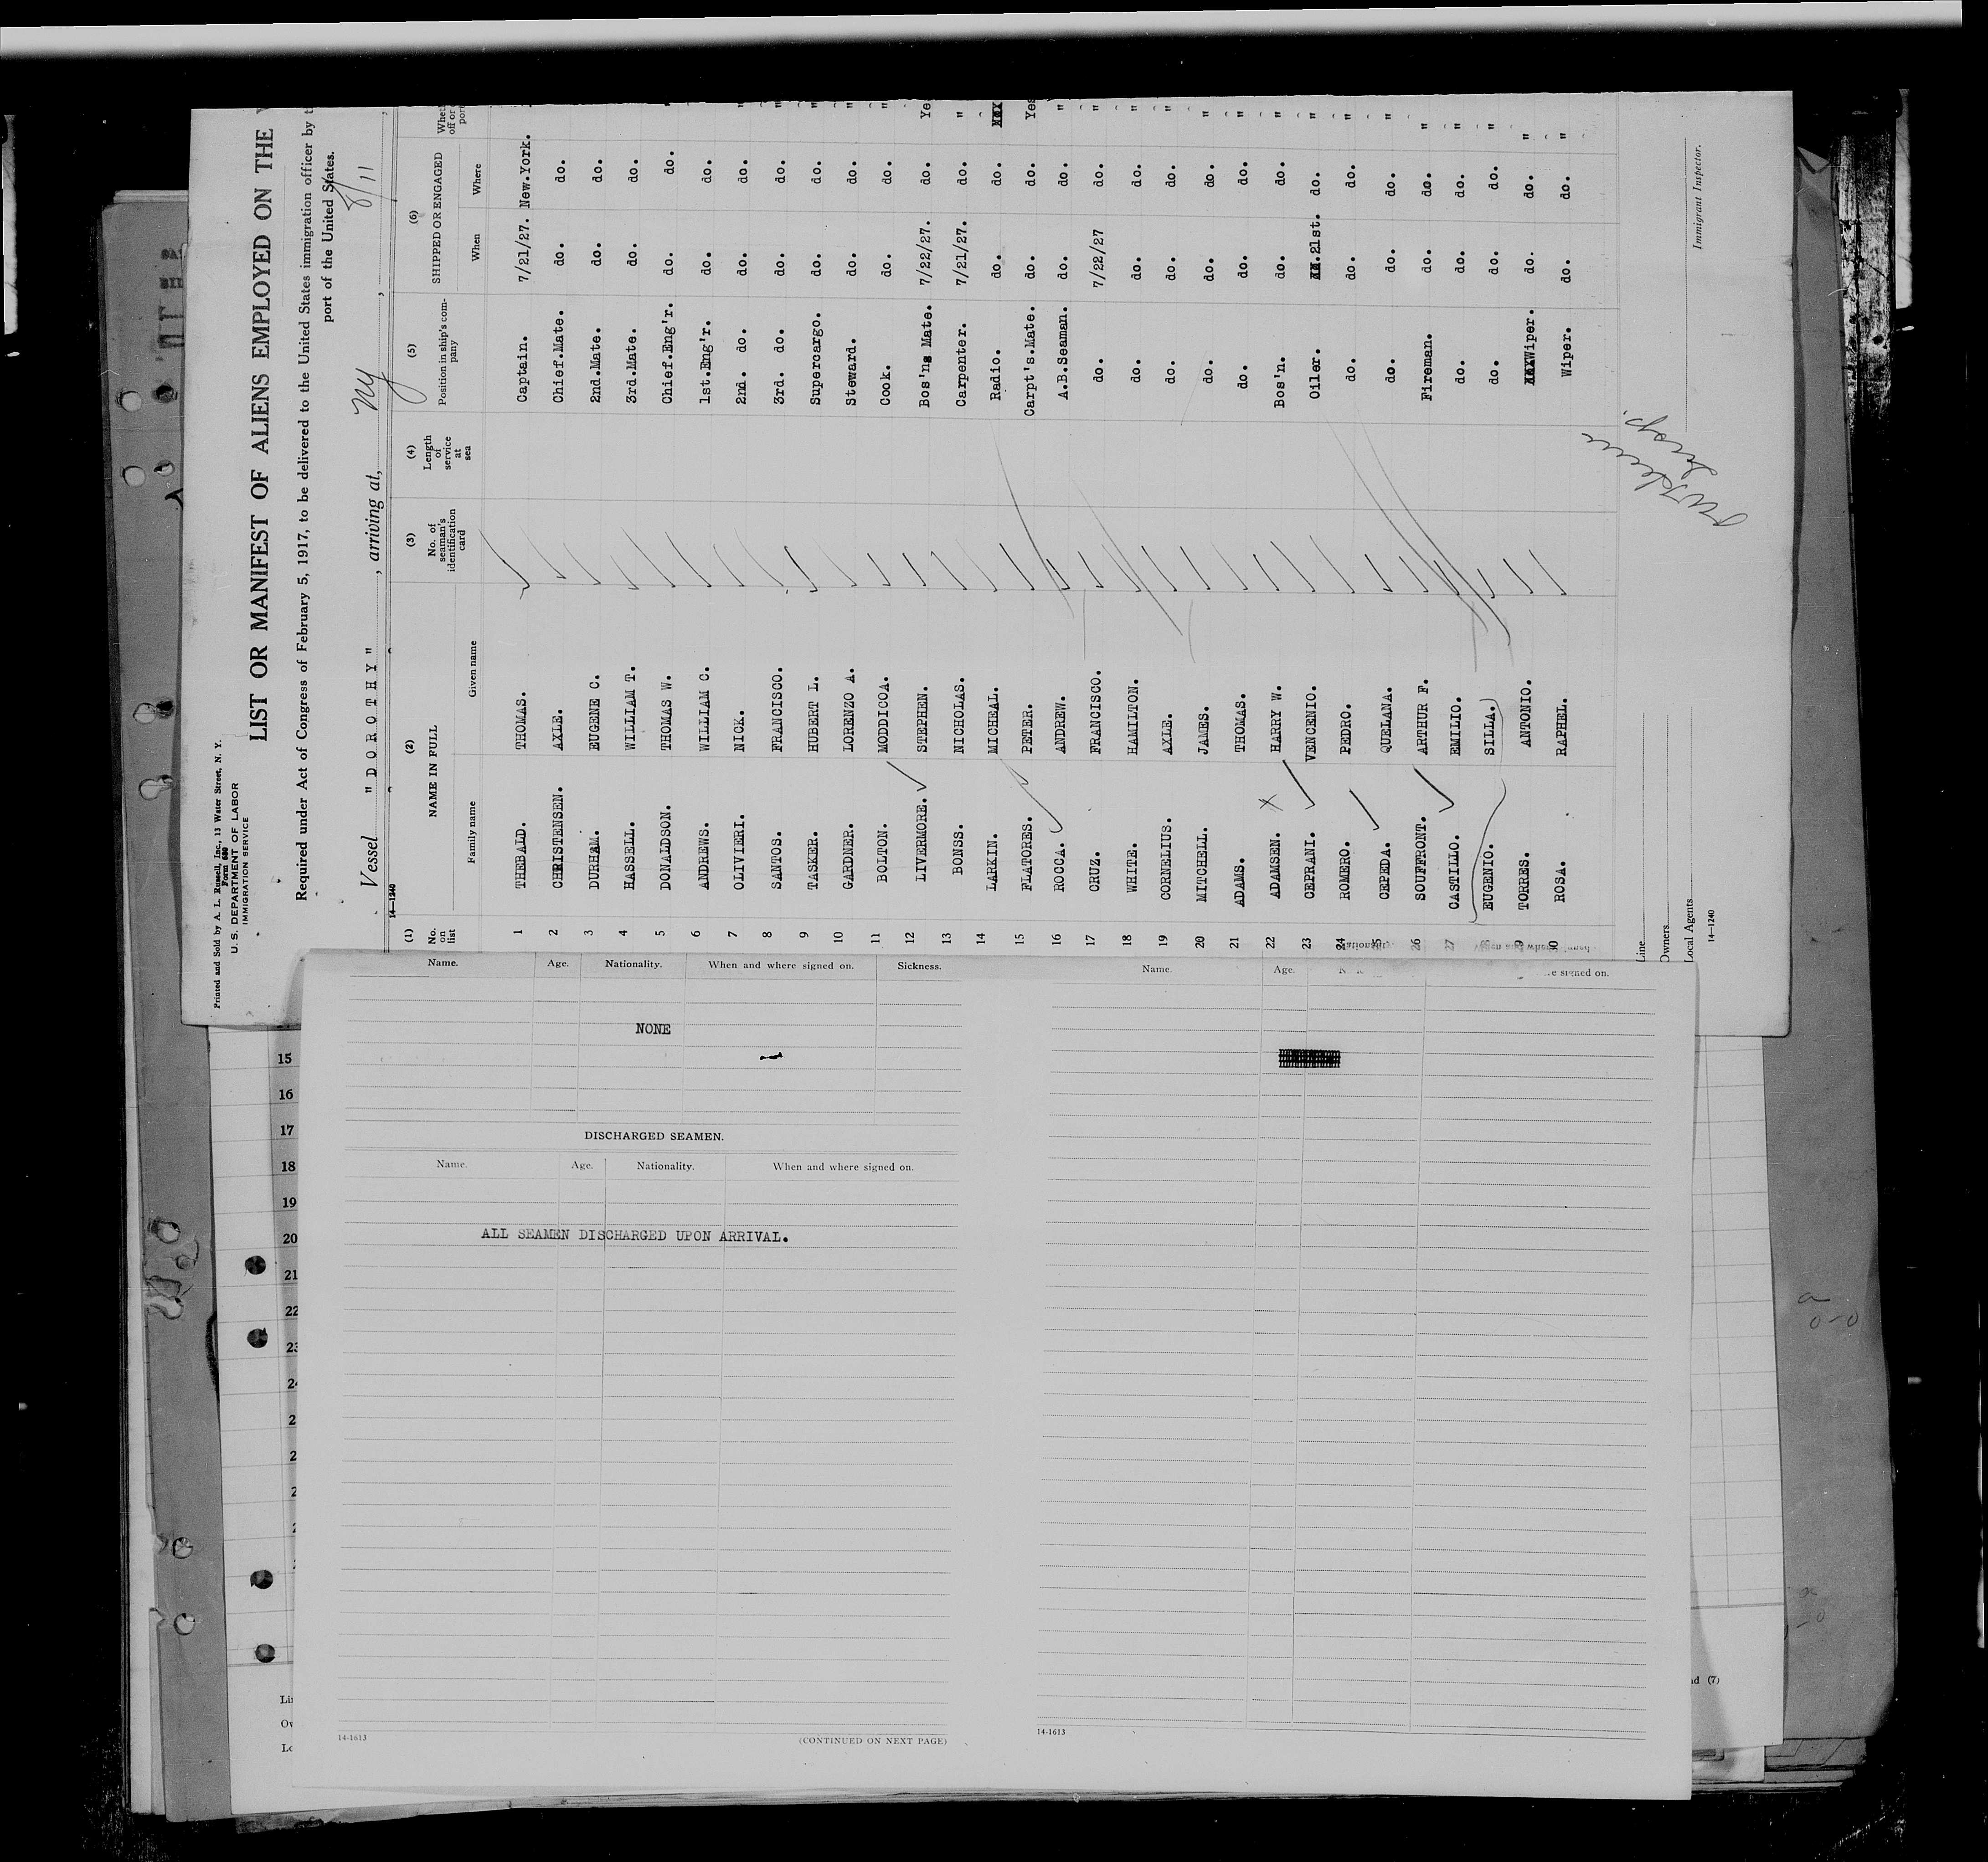 Printed and Sold by A. L. Russell, Inc., 13 Water Street, N. Y.
Form 680
U. S. DEPARTMENT OF LABOR
IMMIGRATION SERVICE
LIST OR MANIFEST OF ALIENS EMPLOYED ON THE
Required under Act of Congress of February 5, 1917, to be delivered to the United States immigration officer by
port of the United States.
8/11
Vessel "DOROTHY", arriving at, NY,
14—1240
(1) (2) (3) (4) (5) (6)
No. on list NAME IN FULL No. of seaman's identification card Length of service at sea Position in ship's company SHIPPED OR ENGAGED
Family name Given name When Where
1 THEBALD. THOMAS. Captain. 7/21/27. New.York.
2 CHRISTENSEN. AXLE. Chief.Mate. do. do.
3 DURHAM. EUGENE C. 2nd.Mate. do. do.
4 HASSELL. WILLIAM T. 3rd.Mate. do. do.
5 DONALDSON. THOMAS W. Chief.Eng'r. do. do. "
6 ANDREWS. WILLIAM C. 1st.Eng'r. do. do.
7 OLIVIERI. NICK. 2nd. do. do. do. "
8 SANTOS. FRANCISCO. 3rd. do. do. do. "
9 TASKER. HUBERT L. Supercargo. do. do. "
10 GARDNER. LORENZO A. Steward. do. do. "
11 BOLTON. MODDICOA. Cook. do. do. "
12 LIVERMORE. STEPHEN. Bos'ns Mate. 7/22/27. do. Ye
13 BONSS. NICHOLAS. Carpenter. 7/21/27. do. "
14 LARKIN. MICHEAL. Radio. do. do.
15 FLATORES. PETER. Carpt's.Mate. do. do. Yes
16 ROCCA. ANDREW. A.B.Seaman. do. do. "
17 CRUZ. FRANCISCO. do. 7/22/27 do. "
18 WHITE. HAMILTON. do. do. do. "
19 CORNELIUS. AXLE. do. do. do. "
20 MITCHELL. JAMES. do. do. do. "
21 ADAMS. THOMAS. do. do. do. "
22 ADAMSEN. X HARRY W. Bos'n. do. do. "
23 CEPRANI. VENCENIO. Oiler. 21st. do. "
24 ROMERO. PEDRO. do. do. do. "
25 CEPEDA. QUELANA. do. do. do. "
26 SOUFFRONT. ARTHUR F. Fireman. do. do. "
27 CASTILLO. EMILIO. do. do. do. "
28 EUGENIO. SILLA. do. do. do. "
9 TORRES. ANTONIO. Wiper. do. do. "
30 ROSA. RAPHEL. Wiper. do. do. "
Line
Owners
Local Agents
14—1240
Immigrant Inspector.
Name. Age. Nationality. When and where signed on. Sickness.
NONE
DISCHARGED SEAMEN.
Name. Age. Nationality. When and where signed on.
ALL SEAMEN DISCHARGED UPON ARRIVAL.
14-1613
(CONTINUED ON NEXT PAGE)
Name. Age. e signed on.
14-1613
15
16
17
18
19
20
21
22